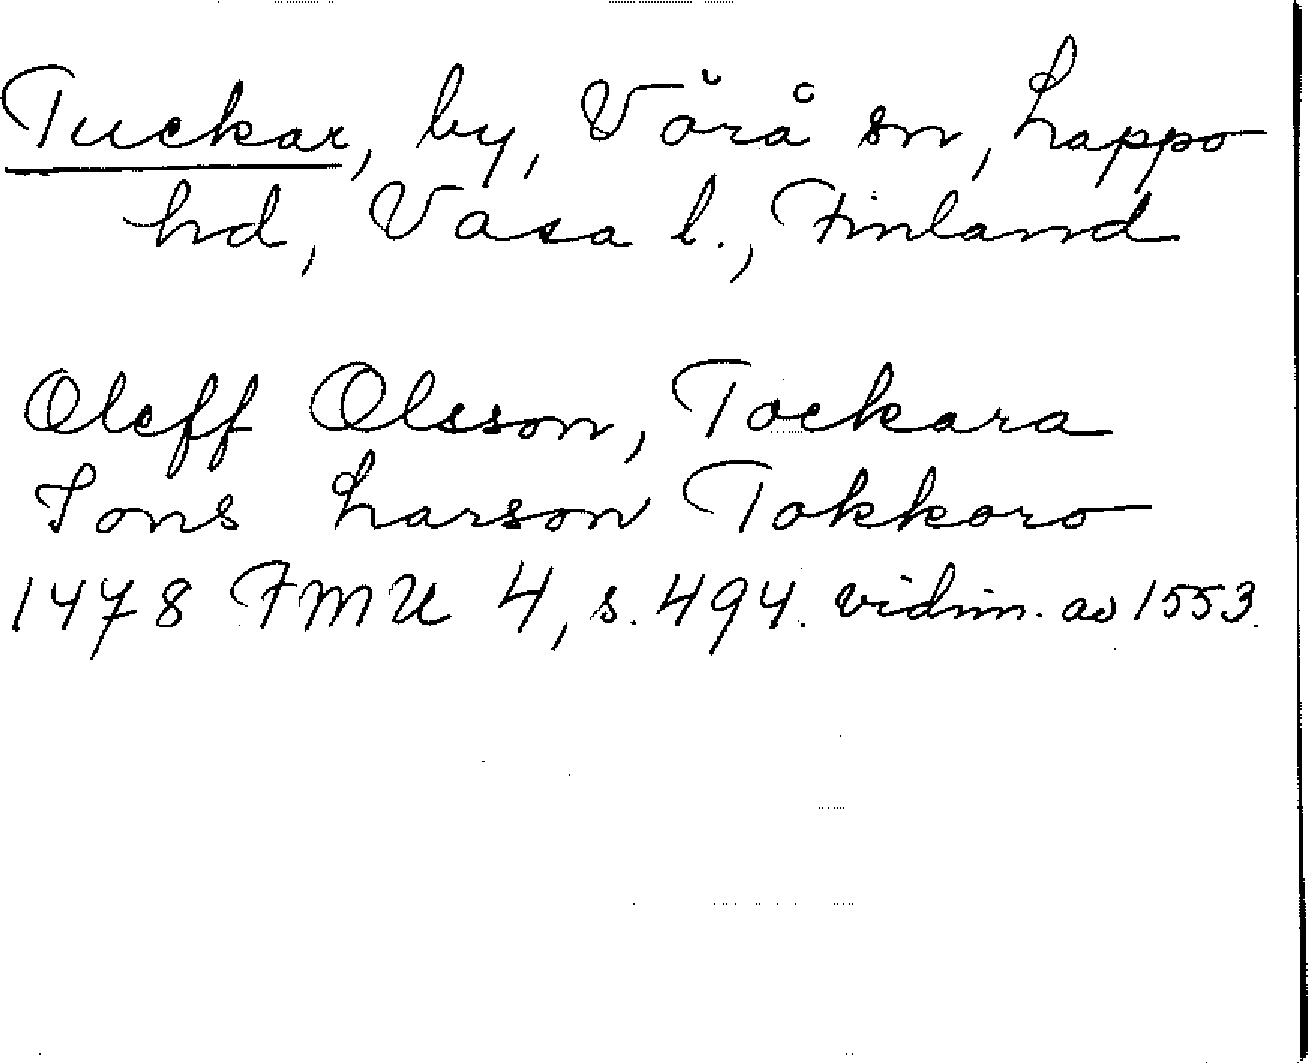 Tuckar, by, Vörå sn, Lappo
hd, Vasa l., Finland
Oleff Olsson, Tockara
Jons Larson Tokkoro
1478 FMU 4, s. 494. vidim. av 1553.